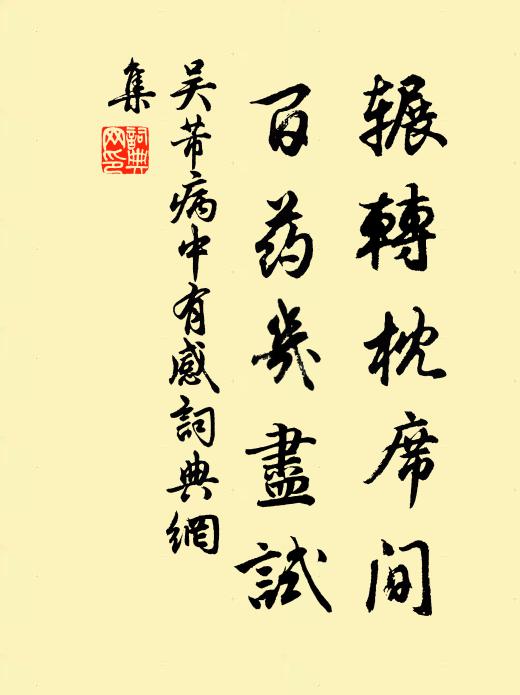 辗轉枕席间
百药幾盡試
吴芾病中有感詞典網
集
詞典
网印